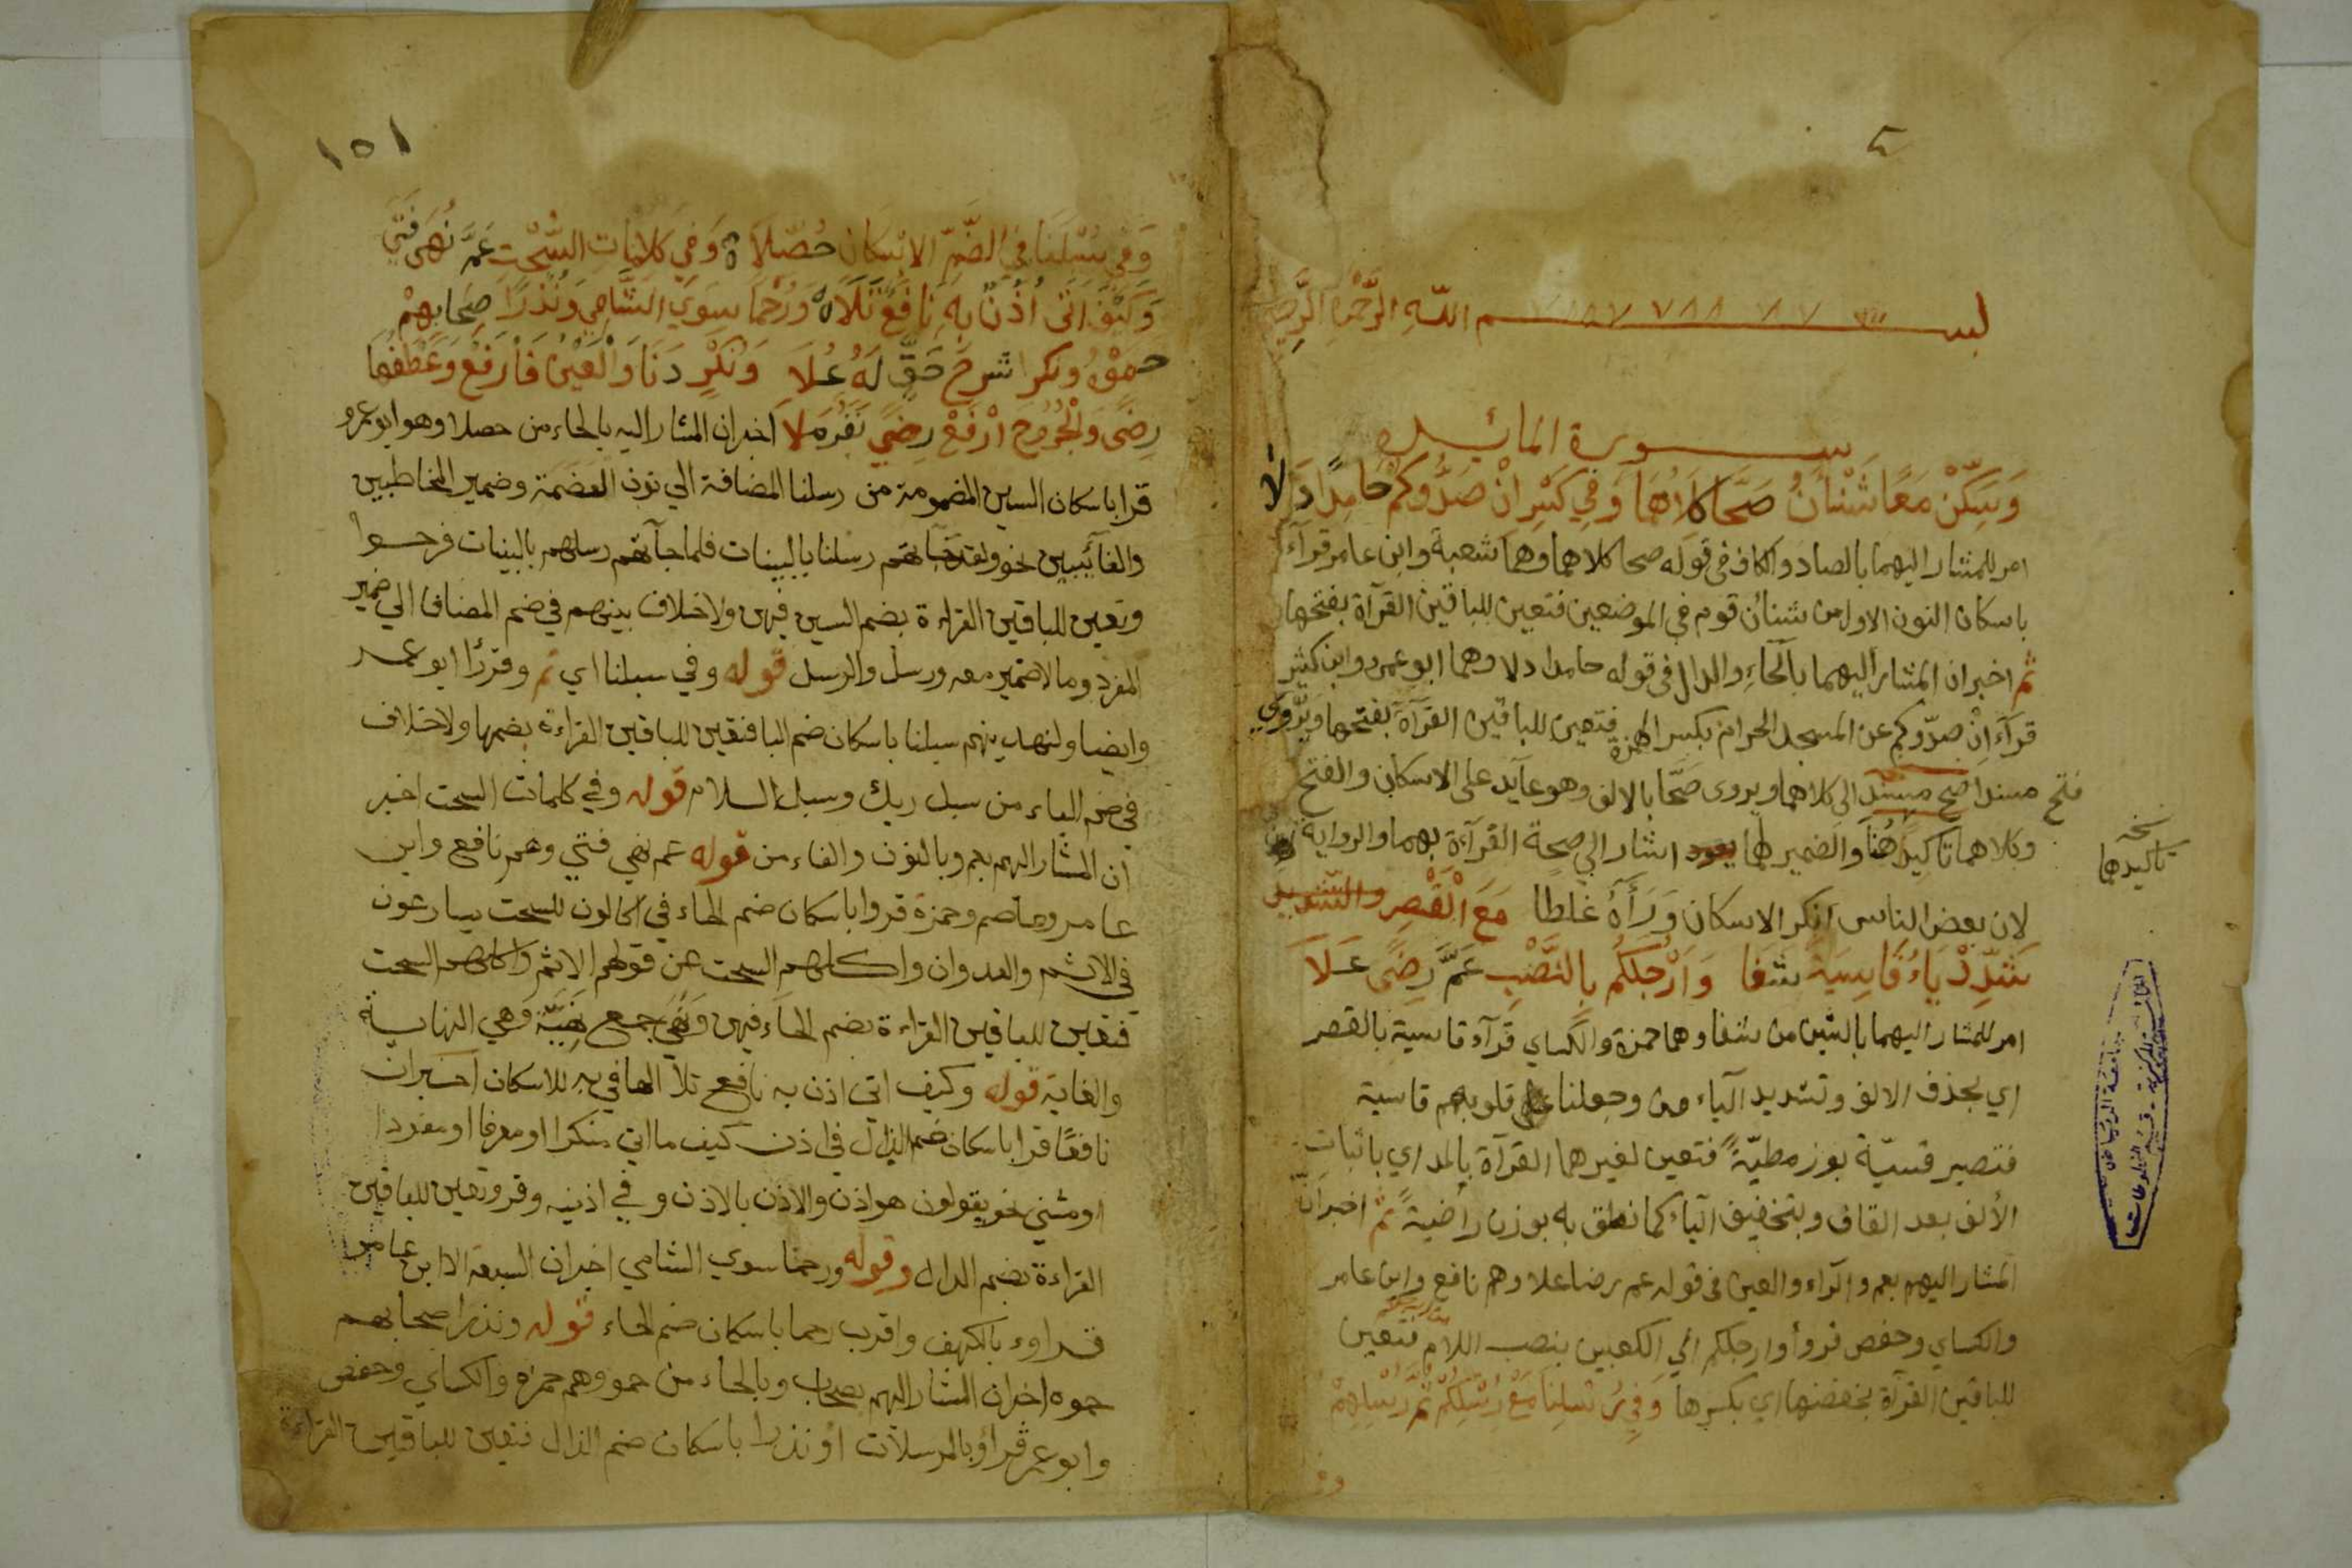 بسم الله الرحمن الرحيم
سورة المائدة
وَسَكِّنْ مَعًا شَنْآنُ صَحَّا كِلَاهُمَا وَفِي كَسْرِ انْ صَدُّوكُمْ حَامِدًا دَلَا
امر للمشار اليهما بالصاد والكاف في قوله صحا كلاهما وهما شعبة وابن عامر قرآء
باسكان النون الاول من شنئان قوم في الموضعين فتعين للباقين القرآة بفتحها
ثم اخبر ان المشار اليهما بالحاء والدال في قوله حامدا دلا وهما ابو عمرو وابن كثير
قرآء ان صدّوكم عن المسجد الحرام بكسر الهمزة فتعين للباقين القرآة بفتحها ويروي
فتح مسندا صح مسند الى كلاهما ويروى صحّا بالالف وهو عايد على الاسكان والفتح
وكلاهما تاكيد هنا والضمير لها يعود اشار الي صحة القرآة بهما والرواية
نسخه
تاكيدهما
لان بعض الناس انكر الاسكان ورآه غلطا مَعَ الْقَصْرِ والتشديد
شَدِّدْ يَاءُ قَاسِيَةً شفا وَأَرْجُلَكُمْ بِالنَّصْبِ عَمَّ رِضًى عَلَا
امر للمشار اليهما بالشين من شفا وهما حمزة والكساي قرآء قاسية بالقصر
اي بحذف الالف وتشديد الياء من وجعلنا قلوبهم قاسية
فتصير قسيّة بوزن مطيّة فتعين لغيرهما القرآة بالمد اي باثبات
الألف بعد القاف وبتخفيف الياء كما نطق به بوزن راضية ثم اخبر ان
المشار اليهم بعم والراء والعين في قوله عم رضا علا وهم نافع وابن عامر
والكساي وحفص قروأ وارجلكم الي الكعبين بنصب اللام فتعين
للباقين القرآة بخفضها اي بكسرها وَفِي رُسْلِنَا مَعْ رُسْلِكُمْ ثُمَّ رُسْلِهِمْ
وفي
١٥١
وَفي سُبْلَنَا فِي الضَّمِّ الاِسْكَانُ حُصِّلَا وَفِي كَلِمَاتِ السُّحْتِ عَمَّ نُهَى فَتًى
وَكَيْفَ اَتَى أُذْنٌ بِهِ نَافِعٌ تَلَا وَرُحْمًا سِوَى الشَّامِي وَنُذْرًا صِحَابُهُمْ
حموه ونكرا شرع حَقٍّ لَهُ عُلَا وَنُكْرٍ دَنَا وَالْعَيْنُ فَارْفَعْ وَعَطْفُهَا
رِضًى وَالْجُرُوحَ ارْفَعْ رِضَى نَفَرٍ مَلَا اخبر ان المشار اليه بالحاء من حصلا وهو ابو عمرو
قرا باسكان السين المضمومة من رسلنا المضافة الي نون العضمة وضمير المخاطبين
والغائبين نحو ولقد جاتهم رسلنا بالبينات فلما جآتهم رسلهم بالبينات فرحوا
وتعين للباقين القراءة بضم السين فيهن ولاخلاف بينهم في ضم المضاف الي ضمير
المفرد وما لاضمير معه ورسل والرسل قوله وفي سبلنا اي ثم وقرأ ابو عمر
وايضا ولنهدينهم سبلنا باسكان ضم البا فتعين للباقين القراءة بضمها ولاخلاف
في ضم الباء من سبل ربك وسبل السلام قوله وفي كلمات السحت اخبر
ان المشار اليهم بعم وبالنون والفاء من قوله عم نهي فتي وهم نافع وابن
عامر وعاصم وحمزة قروا باسكان ضم الحاء في اكالون للسحت يسارعون
في الاثم والعدوان واكلهم السحت عن قولهم الاثم واكلهم السحت
فتعين للباقين القراءة بضم الحاء فيهن ونهي جمع نهية وهي النهاية
والغاية قوله وكيف اتي اذن به نافع تلا الها في به للاسكان اخبر ان
نافعًا قرا باسكان ضم الذال في اذن كيف ما اتي منكرا او معرفا او مفردا
او مثني نحو يقولون هو اذن والاذن بالاذن وفي اذنيه وقر وتعين للباقين
القراءة بضم الذال وقوله ورحما سوي الشامي اخبر ان السبعة الا ابن عامر
قراوء بالكهف واقرب رحما باسكان ضم الحاء قوله ونذرا صحابهم
حموه اخبر ان المشار اليهم بصحاب وبالحاء من حموه وهم حمزه والكساي وحفص
وابو عمر قراؤ بالمرسلات اؤ نذرا باسكان ضم الذال فتعين للباقين القراءة